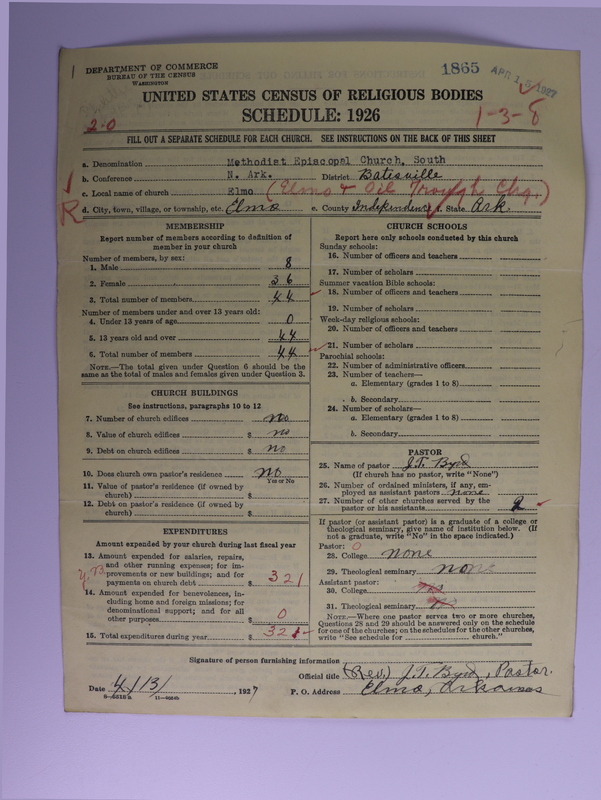 DEPARTMENT OF COMMERCE
BUREAU OF THE CENSUS
WASHINGTON
1865 APR 1 1927
UNITED STATES CENSUS OF RELIGIOUS BODIES
SCHEDULE: 1926
2-0
1-3-8
FILL OUT A SEPARATE SCHEDULE FOR EACH CHURCH. SEE INSTRUCTIONS ON THE BACK OF THIS SHEET
a. Denomination Methodist Episcopal Church, South
b. Conference N. Ark. District Batesville
c. Local name of church Elmo (Elmo & Oil Trough Chg.)
R
d. City, town, village, or township, etc. Elmo e. County Independence f. State Ark.
MEMBERSHIP
Report number of members according to definition of
member in your church
Number of members, by sex:
1. Male 8
2. Female 36
3. Total number of members 44
Number of members under and over 13 years old:
4. Under 13 years of age 0
5. 13 years old and over 44
6. Total number of members 44
NOTE.—The total given under Question 6 should be
same as the total of males and females given under Question 3.
CHURCH BUILDINGS
See instructions, paragraphs 10 to 12
7. Number of church edifices no
8. Value of church edifices $ no
9. Debt on church edifices $ no
10. Does church own pastor's residence no
Yes or No
11. Value of pastor's residence (if owned by
church) $
12. Debt on pastor's residence (if owned by
church) $
EXPENDITURES
Amount expended by your church during last fiscal year
13. Amount expended for salaries, repairs,
and other running expenses; for im-
provements or new buildings; and for
payments on church debt $ 321
14. Amount expended for benevolences, in-
cluding home and foreign missions; for
denominational support; and for all
other purposes $ 0
15. Total expenditures during year $ 321
CHURCH SCHOOLS
Report here only schools conducted by this church
Sunday schools:
16. Number of officers and teachers
17. Number of scholars
Summer vacation Bible schools:
18. Number of officers and teachers
19. Number of scholars
Week-day religious schools:
20. Number of officers and teachers
21. Number of scholars
Parochial schools:
22. Number of administrative officers
23. Number of teachers—
a. Elementary (grades 1 to 8)
b. Secondary
24. Number of scholars—
a. Elementary (grades 1 to 8)
b. Secondary
PASTOR
25. Name of pastor J.T. Byrd
(If church has no pastor, write "None")
26. Number of ordained ministers, if any, em-
ployed as assistant pastors none
27. Number of other churches served by the
pastor or his assistants 2
If pastor (or assistant pastor) is a graduate of a college or
theological seminary, give name of institution below. (If
not a graduate, write "No" in the space indicated.)
Pastor: 0
28. College none
29. Theological seminary none
Assistant pastor:
30. College
31. Theological seminary
NOTE.—Where one pastor serves two or more churches,
Questions 28 and 29 should be answered only on the schedule
for one of the churches; on the schedules for the other churches,
write "See schedule for church."
Signature of person furnishing information
Official title (Rev.) J.T. Byrd, Pastor.
Date 4/13/, 1927 P. O. Address Elmo, Arkansas